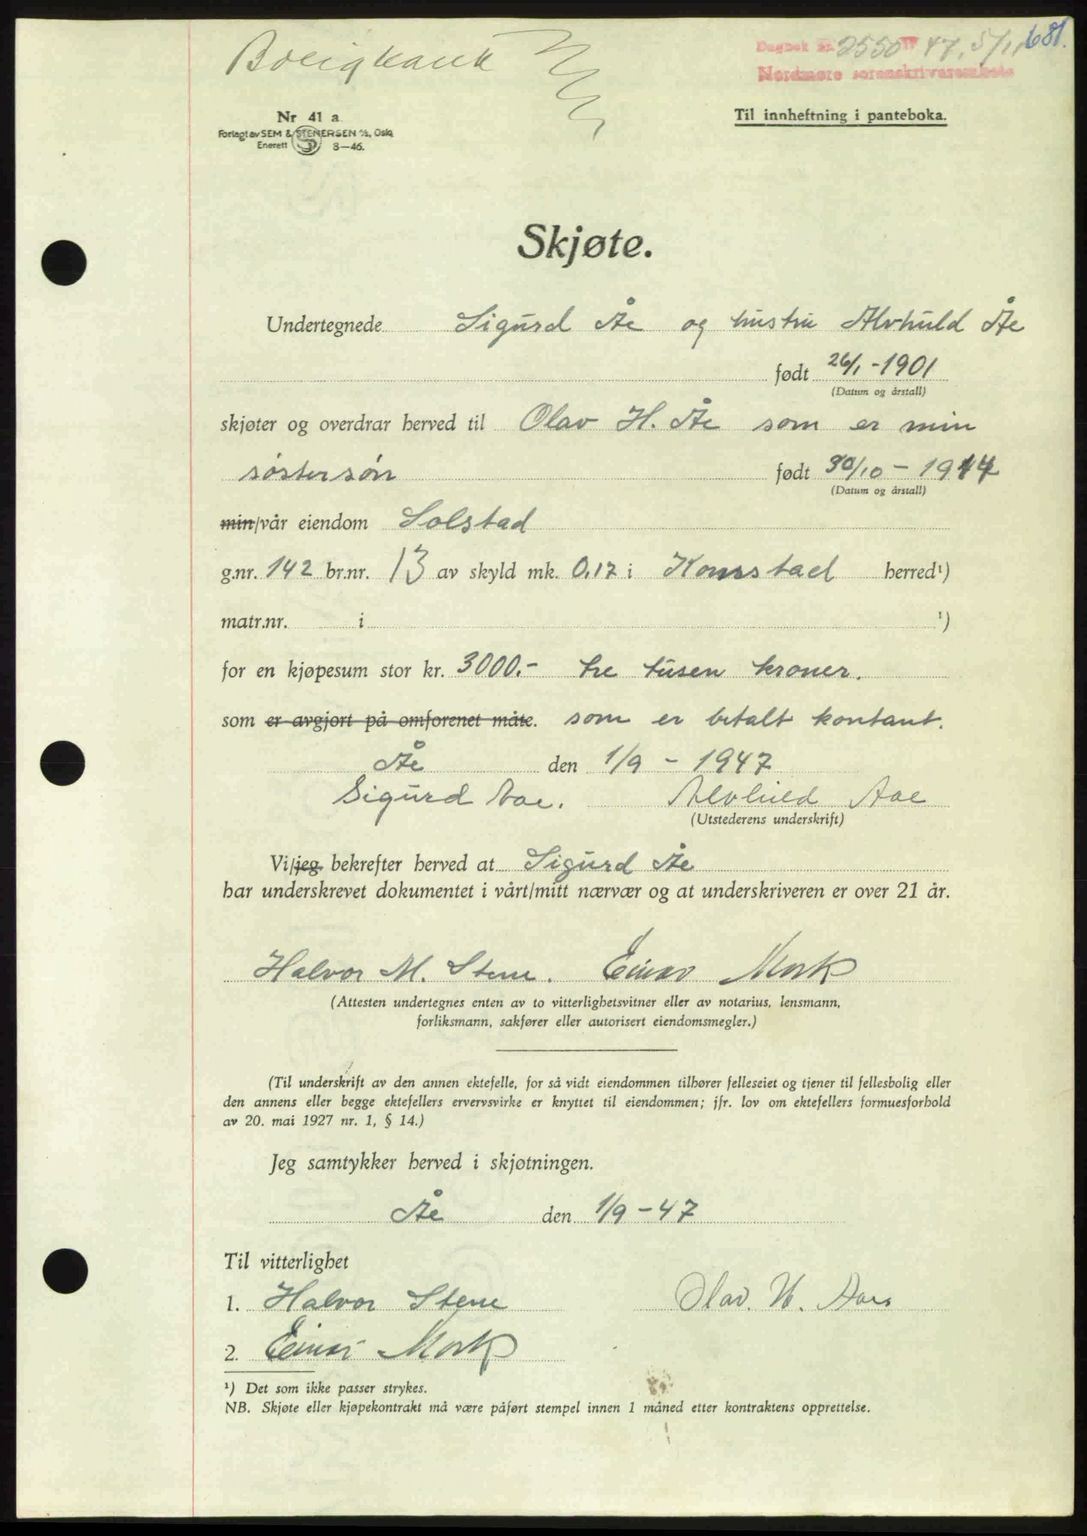 681.
Dagbok nr. 2550 19 47, 5/11
Nordmøre sorenskriverembete
Nr 41 a
Forlagt av SEM & STENERSEN A/S, Oslo
Enerett 8—46.
Til innheftning i panteboka.
Skjøte.
Undertegnede Sigurd Åe og hustru Alvhild Åe
født 26/1 - 1901
(Datum og årstall)
skjøter og overdrar herved til Olav H. Åe som er min
søstersøn født 30/10 - 1914
(Datum og årstall)
min/vår eiendom Solstad
g.nr. 142 br.nr. 13 av skyld mk. 0,17 i Kornstad herred¹)
matr.nr. i ¹)
for en kjøpesum stor kr. 3000.- tre tusen kroner.
som er avgjort på omforenet måte. som er betalt kontant.
Åe den 1/9 - 1947
Sigurd Aae. Alvhild Aae
(Utstederens underskrift)
Vi/jeg bekrefter herved at Sigurd Åe
har underskrevet dokumentet i vårt/mitt nærvær og at underskriveren er over 21 år.
Halvor M. Stene. Einar Mork
(Attesten undertegnes enten av to vitterlighetsvitner eller av notarius, lensmann,
forliksmann, sakfører eller autorisert eiendomsmegler.)
(Til underskrift av den annen ektefelle, for så vidt eiendommen tilhører felleseiet og tjener til fellesbolig eller
den annens eller begge ektefellers ervervsvirke er knyttet til eiendommen; jfr. lov om ektefellers formuesforhold
av 20. mai 1927 nr. 1, § 14.)
Jeg samtykker herved i skjøtningen.
Åe den 1/9 - 47
Til vitterlighet
1. Halvor Stene Olav. H. Aae
2. Einar Mork
¹) Det som ikke passer strykes.
NB. Skjøte eller kjøpekontrakt må være påført stempel innen 1 måned etter kontraktens opprettelse.